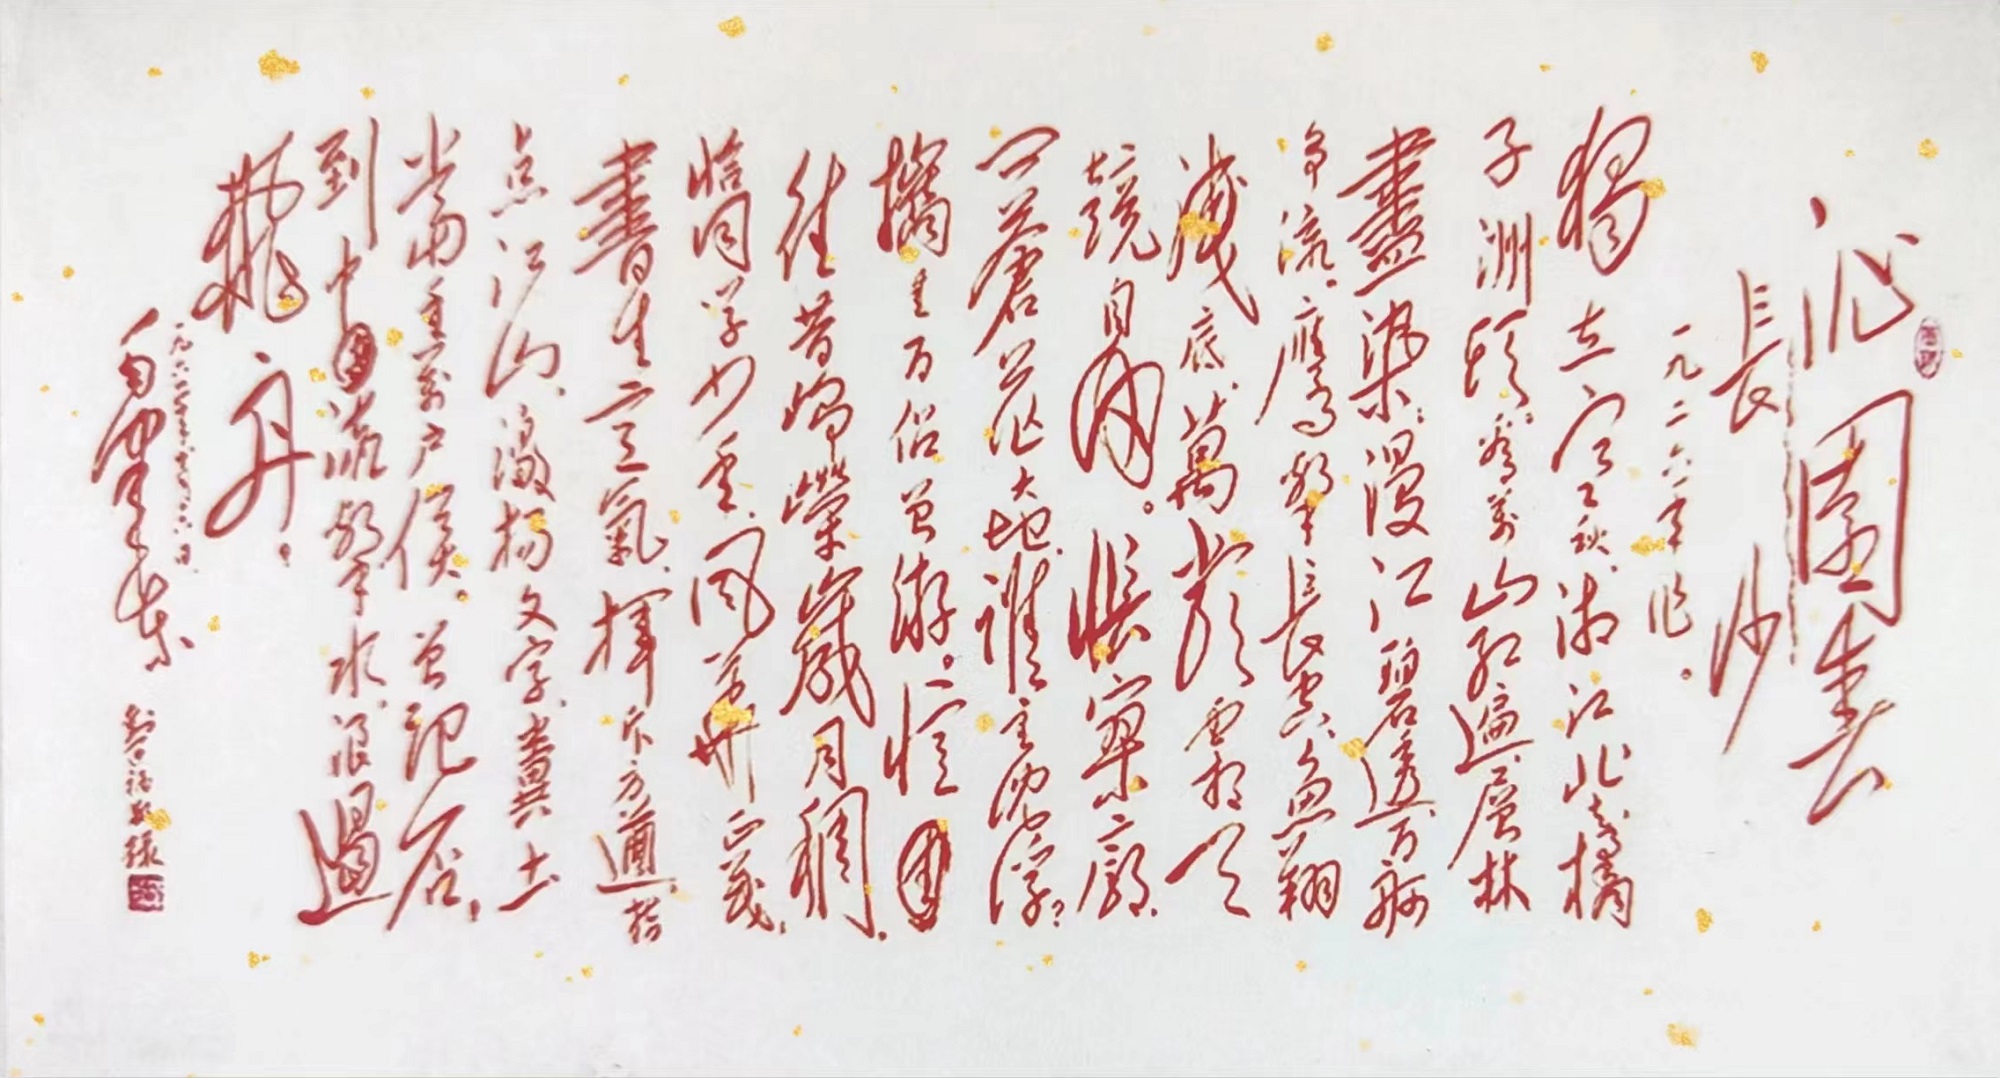 沁園春
長沙
一九二六年作。
獨立寒秋,湘江北去,橘
子洲頭。看萬山红遍,層林
盡染;漫江碧透,百舸
争流。鷹擊長空,魚翔
淺底,萬類霜天
競自由。悵寥廓,
问蒼茫大地,誰主沉浮?
攜来百侣曾游。憶
往昔崢嶸歲月稠。
恰同学少年,风華正茂;
書生意氣,揮斥方遒。指
点江山,激揚文字,糞土
當年萬户侯。曾記否,
到中流擊水,浪遏
飛舟。
毛澤東